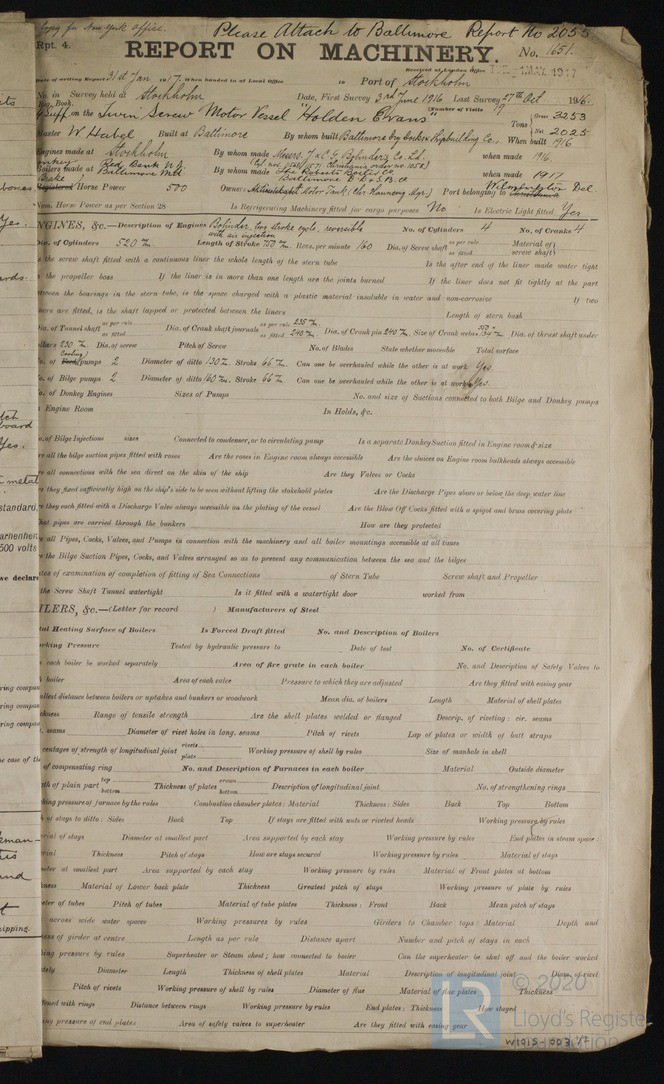 Copy for New York office.
Please Attach to Baltimore Report No 2055
Rpt. 4.
REPORT ON MACHINERY.
No. 1651.
Received at London Office
Date of writing Report 31st Jan 1917. When handed in at Local Office
Port of Stockholm
No. in Survey held at Stockholm
Date, First Survey 3rd June 1916 Last Survey 27th Oct 1916.
Reg. Book.
(Number of Visits 19
on the Twin Screw Motor Vessel "Holden Evans"
Tons Gross 3253
Net 2025
Master W Habel Built at Baltimore
By whom built Baltimore Dry Docks & Shipbuilding Co., When built 1916
Engines made at Stockholm By whom made Messrs J & C G Bolinders Co. Ld. when made 1916.
Boilers made at
Red Bank N.J.
Baltimore Md.
By whom made
when made 1917
Registered Horse Power 500
Owners
Port belonging to Wilmington Del.
Nom. Horse Power as per Section 28
Is Refrigerating Machinery fitted for cargo purposes No
Is Electric Light fitted Yes
ENGINES, &c.—Description of Engines Bolinder, two stroke cycle, reversible with air injection
No. of Cylinders 4 No. of Cranks 4
Dia. of Cylinders 520 m/m Length of Stroke 750 m/m Revs. per minute 160 Dia. of Screw shaft as per rule as fitted Material of screw shaft)
is the screw shaft fitted with a continuous liner the whole length of the stern tube Is the after end of the liner made water tight
in the propeller boss If the liner is in more than one length are the joints burned If the liner does not fit tightly at the part
between the bearings in the stern tube, is the space charged with a plastic material insoluble in water and non-corrosive If two
liners are fitted, is the shaft lapped or protected between the liners Length of stern bush
Dia. of Tunnel shaft as per rule as fitted Dia. of Crank shaft journals as per rule 235 m/m as fitted 240 m/m Dia. of Crank pin 240 m/m Size of Crank webs Dia. of thrust shaft under
collars 230 m/m Dia. of screw Pitch of Screw No. of Blades State whether moveable Total surface
No. of Feed (Cooling) pumps 2 Diameter of ditto 130 m/m Stroke 66 m/m Can one be overhauled while the other is at work Yes
No. of Bilge pumps 2 Diameter of ditto 160 m/m Stroke 66 m/m Can one be overhauled while the other is at work Yes
No. of Donkey Engines Sizes of Pumps No. and size of Suctions connected to both Bilge and Donkey pumps
In Engine Room In Holds, &c.
No. of Bilge Injections sizes Connected to condenser, or to circulating pump Is a separate Donkey Suction fitted in Engine room & size
Are all the bilge suction pipes fitted with roses Are the roses in Engine room always accessible Are the sluices on Engine room bulkheads always accessible
Are all connections with the sea direct on the skin of the ship Are they Valves or Cocks
Are they fixed sufficiently high on the ship's side to be seen without lifting the stokehold plates Are the Discharge Pipes above or below the deep water line
Are they each fitted with a Discharge Valve always accessible on the plating of the vessel Are the Blow Off Cocks fitted with a spigot and brass covering plate
What pipes are carried through the bunkers How are they protected
Are all Pipes, Cocks, Valves, and Pumps in connection with the machinery and all boiler mountings accessible at all times
Are the Bilge Suction Pipes, Cocks, and Valves arranged so as to prevent any communication between the sea and the bilges
Dates of examination of completion of fitting of Sea Connections of Stern Tube Screw shaft and Propeller
Is the Screw Shaft Tunnel watertight Is it fitted with a watertight door worked from
BOILERS, &c.—(Letter for record ) Manufacturers of Steel
Total Heating Surface of Boilers Is Forced Draft fitted No. and Description of Boilers
Working Pressure Tested by hydraulic pressure to Date of test No. of Certificate
Can each boiler be worked separately Area of fire grate in each boiler No. and Description of Safety Valves to
each boiler Area of each valve Pressure to which they are adjusted Are they fitted with easing gear
Smallest distance between boilers or uptakes and bunkers or woodwork Mean dia. of boilers Length Material of shell plates
Thickness Range of tensile strength Are the shell plates welded or flanged Descrip. of riveting : cir. seams
long. seams Diameter of rivet holes in long. seams Pitch of rivets Lap of plates or width of butt straps
Percentages of strength of longitudinal joint rivets plate Working pressure of shell by rules Size of manhole in shell
Size of compensating ring No. and Description of Furnaces in each boiler Material Outside diameter
Length of plain part top bottom Thickness of plates crown bottom Description of longitudinal joint No. of strengthening rings
Working pressure of furnace by the rules Combustion chamber plates : Material Thickness : Sides Back Top Bottom
Pitch of stays to ditto : Sides Back Top If stays are fitted with nuts or riveted heads Working pressure by rules
Material of stays Diameter at smallest part Area supported by each stay Working pressure by rules End plates in steam space :
Material Thickness Pitch of stays How are stays secured Working pressure by rules Material of stays
Diameter at smallest part Area supported by each stay Working pressure by rules Material of Front plates at bottom
Thickness Material of Lower back plate Thickness Greatest pitch of stays Working pressure of plate by rules
Diameter of tubes Pitch of tubes Material of tube plates Thickness : Front Back Mean pitch of stays
Pitch across wide water spaces Working pressures by rules Girders to Chamber tops : Material Depth and
thickness of girder at centre Length as per rule Distance apart Number and pitch of stays in each
Working pressure by rules Superheater or Steam chest; how connected to boiler Can the superheater be shut off and the boiler worked
separately Diameter Length Thickness of shell plates Material Description of longitudinal joint Diam. of rivet
Pitch of rivets Working pressure of shell by rules Diameter of flue Material of flue plates Thickness
If stiffened with rings Distance between rings Working pressure by rules End plates : Thickness How stayed
Working pressure of end plates Area of safety valves to superheater Are they fitted with easing gear
© 2020
Lloyd's Register
Foundation
W1015-003 1/2